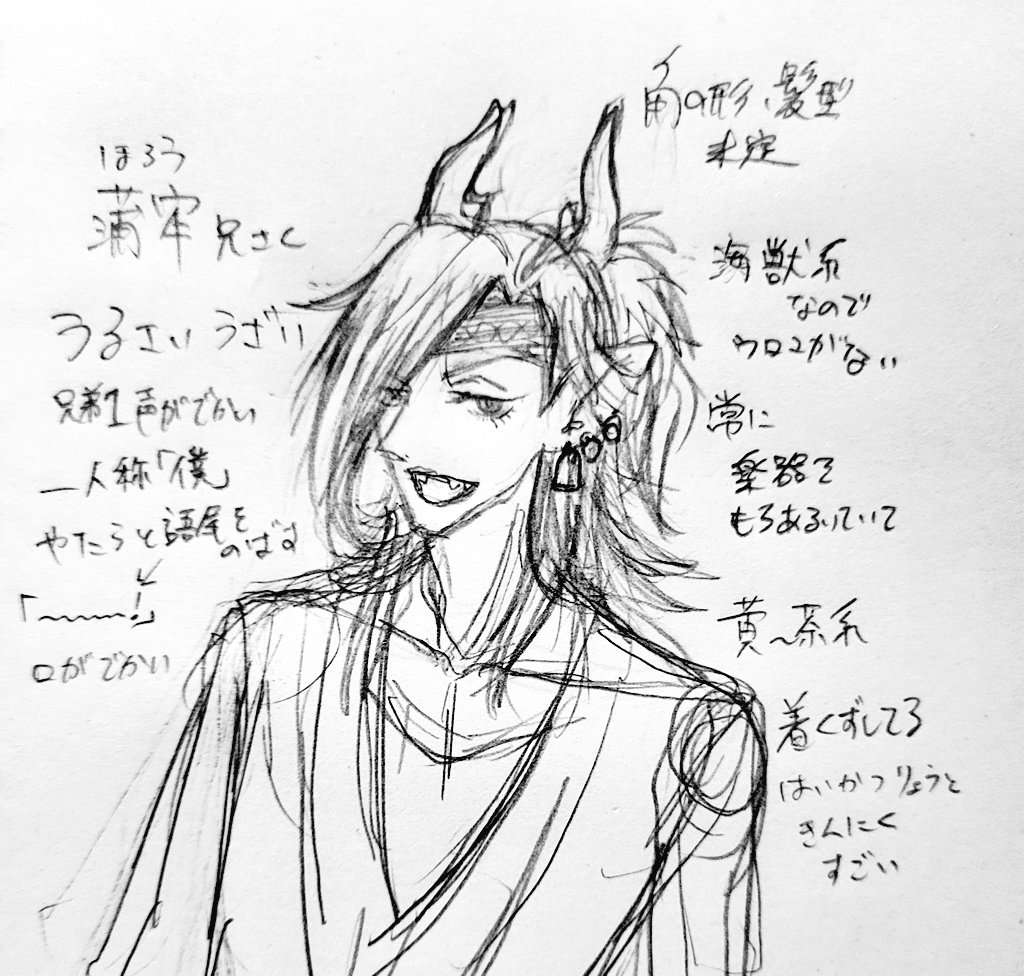 ほろう
蒲牢兄さく
うるさい うざい
兄弟1声がでかい
一人称「僕」
やたらと語尾を
のばす
「〜〜〜!」
口がでかい
角の形、髪型
未定
海獣系
なので
ウロコがない
常に
楽器を
もちあるいていて
黄〜茶系
着くずしてる
はいかつりょうと
きんにく
すごい